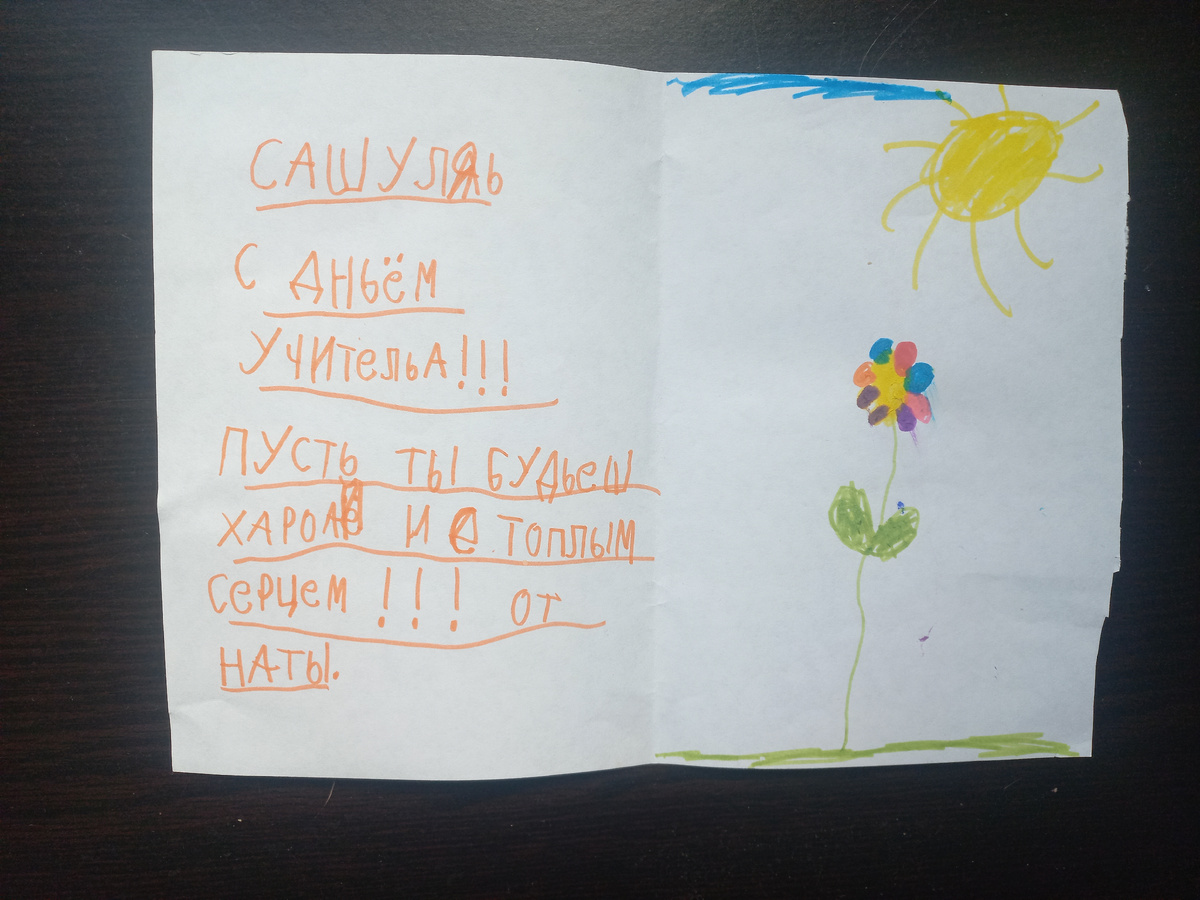 САШУЛЯЬ
С ДНЬЁМ
УЧИТЕЛЬА!!!
ПУСТЬ ТЫ БУДЬЕШ
И ТОПЛЫМ
СЕРЦЕМ !!! ОТ
НАТЫ.